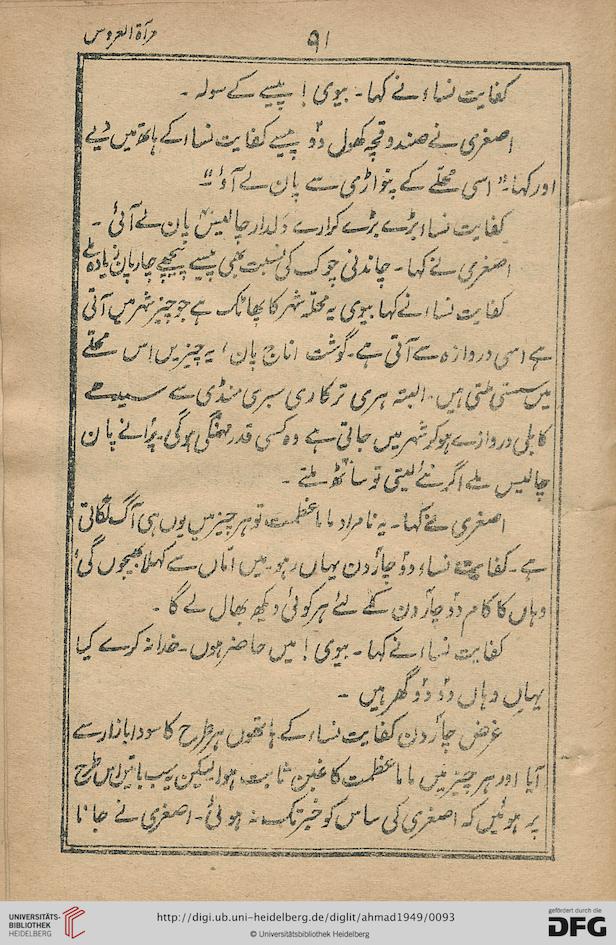 مرآة العروس
۹۱
کفایت نساء نے کہا۔ بیوی! پیسے کے سولہ۔
اصغری نے صندوقچہ کھول دو پیسے کفایت نساء کے ہاتھ میں دیے
اور کہا۔ "اسی محلّے کے پنواڑی سے پان لے آؤ"
کفایت نساء بڑے بڑے کرارے دلدار چالیس پان لے آئی۔
اصغری نے کہا۔ چاندنی چوک کی نسبت بھی پیسے پیچھے چار پان زیادہ ملے
کفایت نساء نے کہا بیوی یہ محلّہ شہر کا پھاٹک ہے جو چیز شہر میں آتی
ہے اسی دروازہ سے آتی ہے۔ گوشت اناج پان، یہ چیزیں اس محلّے
میں سستی ملتی ہیں۔ البتہ ہری ترکاری سبزی منڈی سے سیدھے
کابلی دروازے ہو کر شہر میں جاتی ہے وہ کسی قدر مہنگی ہوگی۔ پرانے پان
چالیس ملے اگر نئے لیتی تو ساٹھ ملتے۔
اصغری نے کہا۔ یہ نامراد ماما عظمت تو ہر چیز میں یوں ہی آگ لگاتی
ہے۔ کفایت نساء دو چار دن یہاں رہو۔ میں اماں سے کہلا بھیجوں گی،
وہاں کا کام دو چار دن کے لئے ہر کوئی دیکھ بھال لے گا۔
کفایت نساء نے کہا۔ بیوی! میں حاضر ہوں۔ خدا نہ کرے کیا
یہاں وہاں دو دو گھر ہیں۔
غرض چار دن کفایت نساء کے ہاتھوں ہر طرح کا سودا بازار سے
آیا اور ہر چیز میں ماما عظمت کا غبن ثابت ہوا لیکن یہ سب باتیں اس طرح
پر ہوئیں کہ اصغری کی ساس کو خبر تک نہ ہوئی۔ اصغری نے جانا
UNIVERSITÄTS-
BIBLIOTHEK
HEIDELBERG
http://digi.ub.uni-heidelberg.de/diglit/ahmad1949/0093
© Universitätsbibliothek Heidelberg
gefördert durch die
DFG